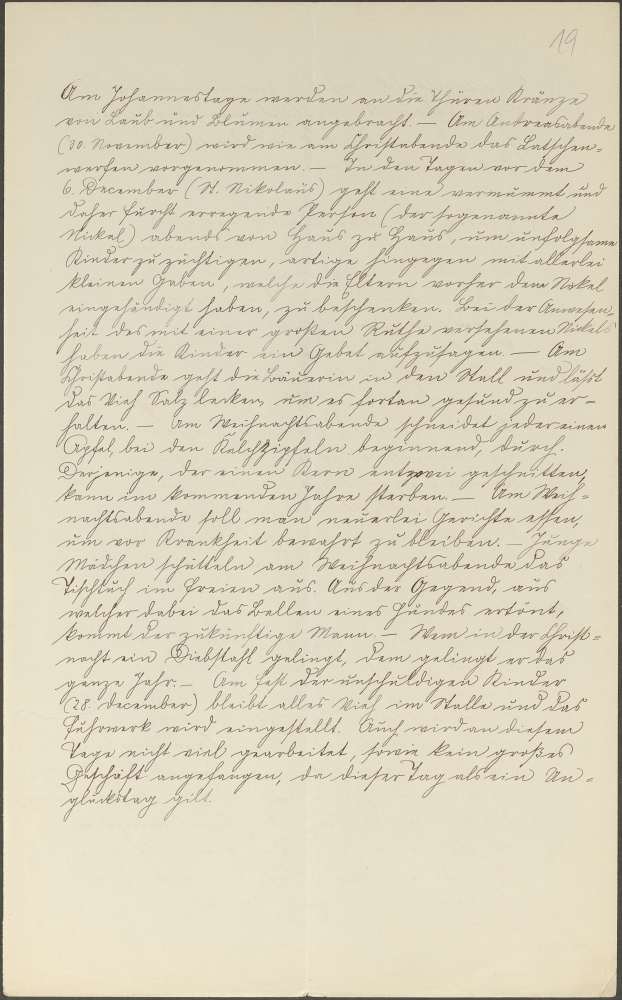 19
Am Johannestage werden an die Thüren Kränze
von Laub und Blumen angebracht. — Am Andreasabende
(30. November) wird wie am Christabende das Latschen-
werfen vorgenommen. — In den Tagen vor dem
6. December (St. Nikolaus) geht eine vermummt und
daher Furcht erregende Person (der sogenannte
Nickel) abends von Haus zu Haus, um unfolgsame
Kinder zu züchtigen, artige hingegen mit allerlei
kleinen Gaben, welche die Eltern vorher dem Nikel
eingehändigt haben, zu beschenken. Bei der Anwesen-
heit des mit einer großen Ruthe versehenen Nickels
haben die Kinder ein Gebet aufzusagen. — Am
Christabende geht die Bäuerin in den Stall und läßt
das Vieh Salz lecken, um es fortan gesund zu er-
halten. — Am Weihnachtsabende schneidet jeder einen
Apfel, bei den Kelchzipfeln beginnend, durch.
Derjenige, der einen Kern entzwei geschnitten,
kann im kommenden Jahre sterben. — Am Weih-
nachtsabende soll man neunerlei Gerichte essen,
um vor Krankheit bewahrt zu bleiben. — Junge
Mädchen schütteln am Weihnachtsabende das
Tischtuch im Freien aus. Aus der Gegend, aus
welcher dabei das Bellen eines Hundes ertönt,
kommt der zukünftige Mann. — Wem in der Christ-
nacht ein Diebstahl gelingt, dem gelingt er das
ganze Jahr. — Am Fest der unschuldigen Kinder
(28. December) bleibt alles Vieh im Stalle und das
Fuhrwerk wird eingestellt. Auch wird an diesem
Tage nicht viel gearbeitet, sowie kein großes
Geschäft angefangen, da dieser Tag als ein Un-
glückstag gilt.